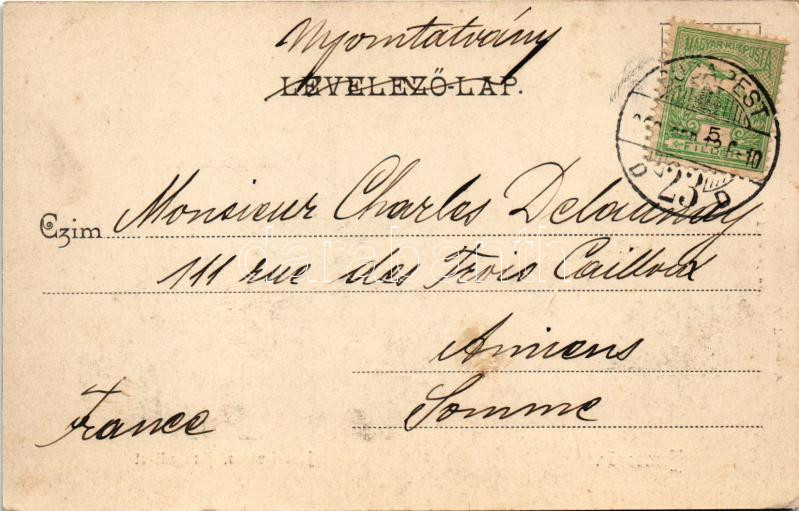 Nyomtatvány
LEVELEZŐ-LAP.
MAGYAR KIR. POSTA
5
BUDAPEST
23
D D
Czim Monsieur Charles Delaunay
darabanth
111 rue des Trois Cailloux
Amiens
Somme
France